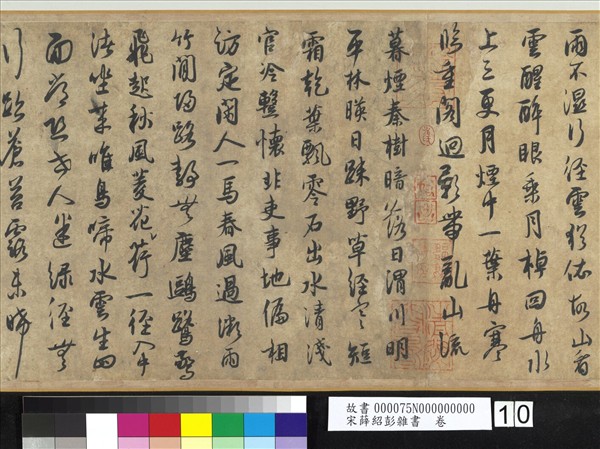 雨不濕行徑雲猶佑故山看
雲醒醉眼乘月棹回舟水
上三更月煙中一葉舟寒
臨重閣迴影帶亂山流
暮煙秦樹暗落日渭川明
平林暎日疎野草經寒短
霜乾葉飄零石出水清淺
官冷整懷非吏事地偏相
訪定閑人一馬春風過微雨
竹間歸路靜無塵鷗鷺驚
飛起秋風菱花荷一徑入
清坐唯鳥啼水雲生四
面人迷綠徑無
行跡蒼苔露未晞
故書 000075N000000000
宋薛紹彭雜書 卷
10